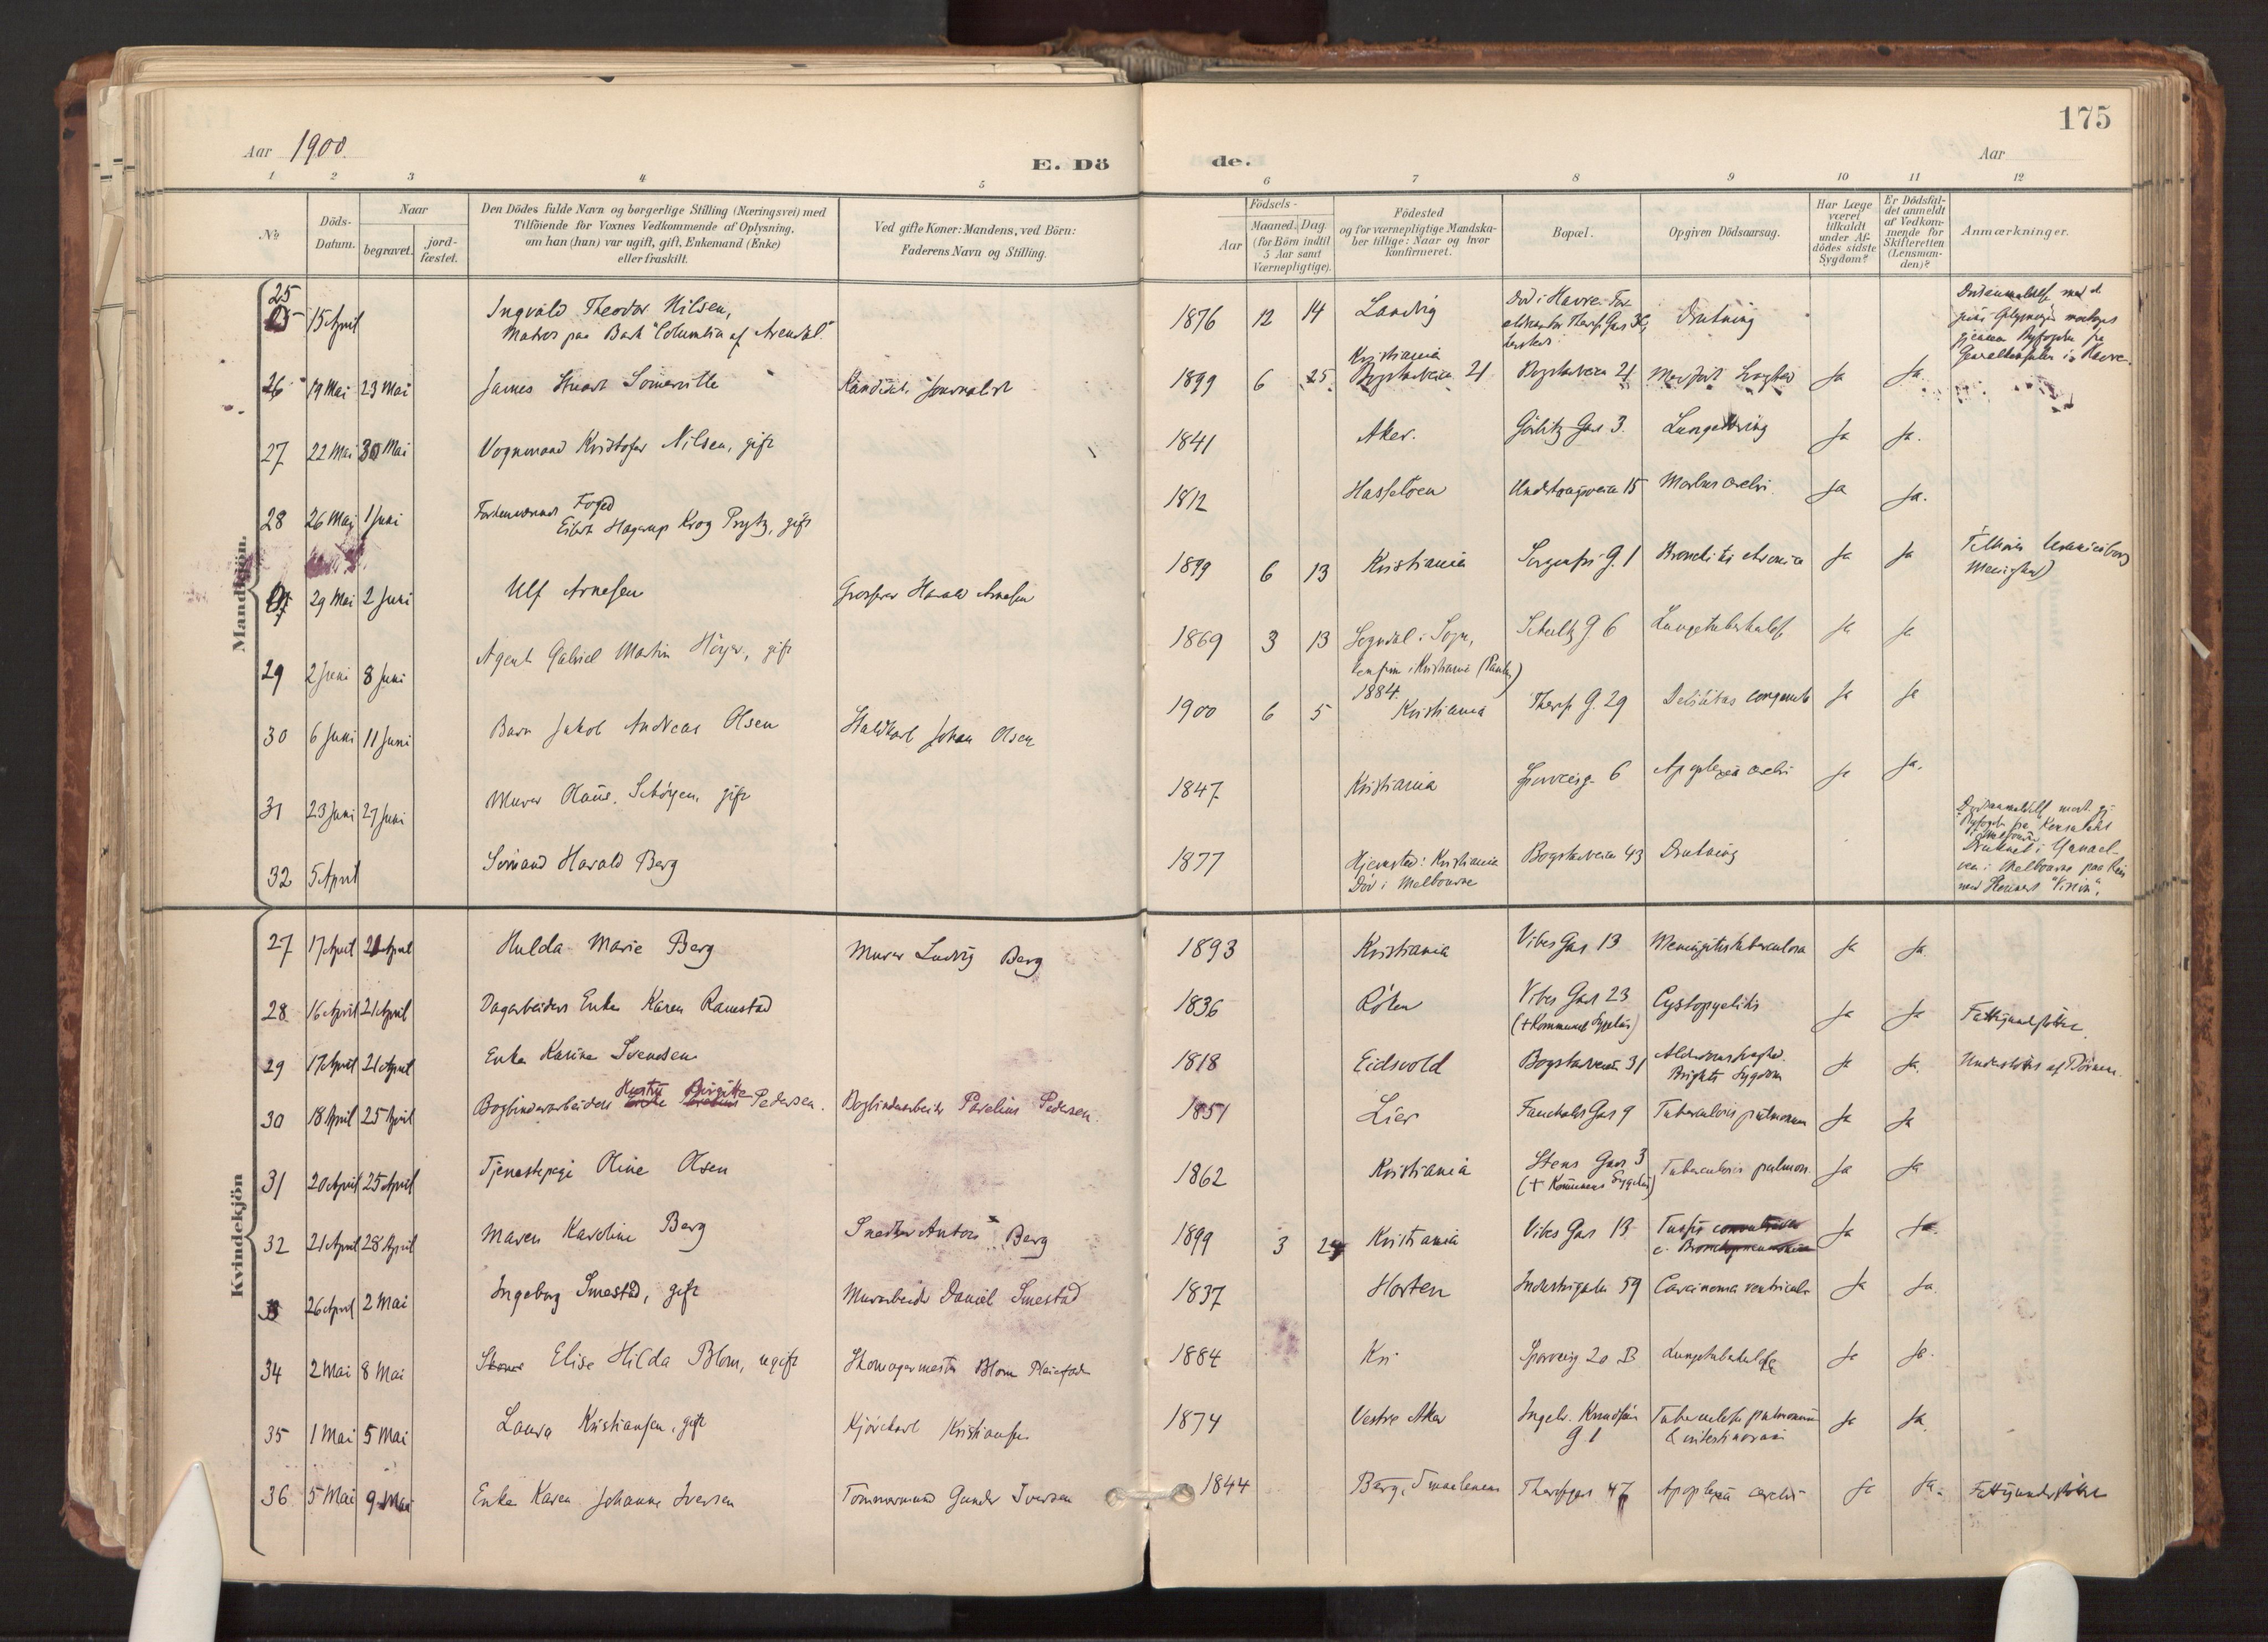 175
Aar 1900.
E. Dö de.
Aar
1 2 3 4 5 6 7 8 9 10 11 12
No
Döds-Datum.
Naar
begravet.
jord-fæstet.
Den Dödes fulde Navn og borgerlige Stilling (Næringsvei) med
Tilföiende for Voxnes Vedkommende af Oplysning,
om han (hun) var ugift, gift, Enkemand (Enke)
eller fraskilt.
Ved gifte Koner: Mandens, ved Börn:
Faderens Navn og Stilling.
Födsels-
Aar
Maaned. Dag
(for Börn indtil
5 Aar samt
Værnepligtige).
Födested
og for værnepligtige Mandska-
ber tillige: Naar og hvor
konfirmeret.
Bopæl.
Opgiven Dödsaarsag.
Har Læge
været
tilkaldt
under Af-
dödes sidste
Sygdom?
Er Dödsfal-
det anmeldt
af Vedkom-
mende for
Skifteretten
(Lensman-
den)?
Anmærkninger.
Mandkjön.
25 15 April Ingvald Theodor Nilsen, 1876 12 14 Landvig Drukning
Matros paa Bark "Columbia af Arendal"
26 19 Mai 23 Mai James Stuart Somerville Journalist 1899 6 25 Kristiania Bogstadveien 21 Bogstadveien 21 Ja Ja
27 22 Mai 30 Mai Vognmand Kristofer Nilsen, gift 1841 Aker. Görbitz Gade 3. Ja Ja.
28 26 Mai 1 Juni Foged
Eilert Hagerup Krog Prytz, gift 1812 Hasselöen Underhaugsveien 15 Morbus cordis Ja Ja.
29 Mai 2 Juni Ulf Arnesen Grosserer Harald Arnesen 1899 6 13 Kristiania Sorgenfri G. 1 Ja Ja
29 2 Juni 8 Juni Agent Gabriel Martin Höyer, gift 1869 3 13 Sogndal i Sogn, Schultz G 6 Lungetuberkulose Ja Ja
1884.
30 6 Juni 11 Juni Barn Jakob Andreas Olsen Johan Olsen 1900 6 5 Kristiania Theres G. 29 Ja Ja
31 23 Juni 27 Juni Murer Olaus Schöyen, gift 1847 Kristiania Sporveisg. 6 Apoplexia cerebri Ja Ja.
32 5 April Sömand Harald Berg 1877 Hjemsted: Kristiania Bogstadveien 43 Drukning
Död i Melbourne
Kvindekjön
27 17 April 21 April Hulda Marie Berg Murer Ludvig Berg 1893 Kristiania Vibes Gade 13 Meningitis tuberculosa Ja Ja
28 16 April 21 April Dagarbeiders Enke Karen Ramstad 1836 Röken Vibes Gade 23 Cystopyelitis Ja Ja Fattigunderstöttet
29 17 April 21 April Enke Karine Svendsen 1818 Eidsvold Bogstadveien 31 Ja Ja. Understöttes af Börnene.
Brights Sygdom
30 18 April 25 April Bogbinderarbeiders Hustru Birgitte Pedersen. Bogbinderarbeider Parelius Pedersen. 1851 Lier Fauchalds Gade 9 Tuberculosis pulmonum Ja Ja
31 20 April 25 April Tjenestepige Oline Olsen 1862 Kristiania Stens Gade 3 Tuberculosis pulmon. Ja Ja
32 21 April 28 April Maren Karoline Berg Snedker Anton Berg 1899 3 24 Kristiania Vibes Gade 13 Tussis convulsiva Ja Ja.
c. Bronchopneumonia
26 April 2 Mai Ingeborg Smestad, gift Murarbeider Daniel Smestad 1837 Horten Industrigaden 59 Carcinoma ventriculi Ja Ja.
34 2 Mai 8 Mai Elise Hilda Blom, ugift Skomagermester Blom 1884 Kri Sporveisg 20 B Lungetuberkulose Ja Ja.
35 1 Mai 5 Mai Laura Kristiansen, gift Kjörekarl Kristiansen 1874 Vestre Aker Ingeb. Knudsöns Tuberculosis pulmonum Ja Ja.
G 1 & intestinorum
36 5 Mai 9 Mai Enke Karen Johanne Iversen Tömmermand Gunder Iversen 1844 Berg, Smaalenene Theresgade 47 Apoplexia cerebri Ja Ja. Fattigunderstöttet